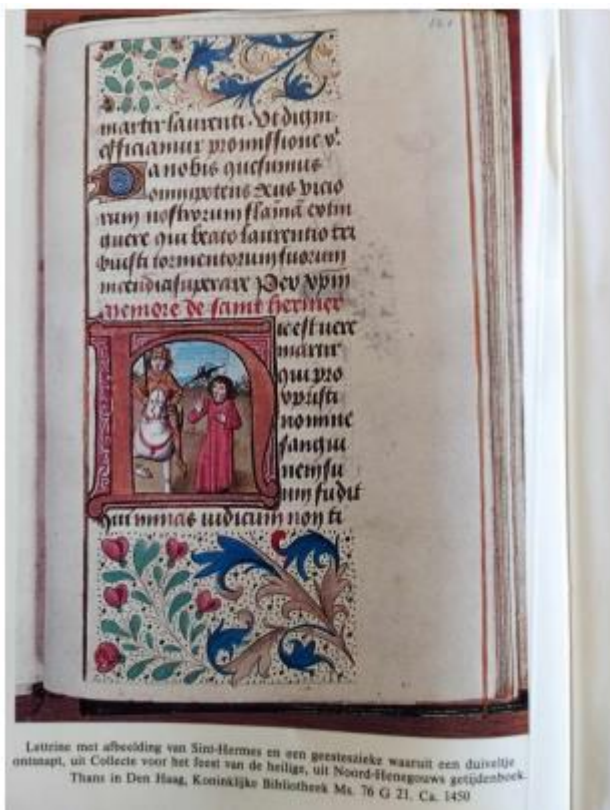 121
martir laurenti . Vt digni
efficiamur promissione v̄.
Da nobis quesumus
omnipotens deus vicio
rum nostrorum flāmā extin
guere qui beato laurentio tri
buisti tormentorum suorum
incendia superare Per xp̄m
memore de saint hermer
Hic est vere
martir
qui pro
xpristi
nomine
sangui
nem su
um fudit
qui minas iudicium non ti
Lettrine met afbeelding van Sint-Hermes en een geesteszieke waaruit een duiveltje
ontsnapt, uit Collecte voor het feest van de heilige, uit Noord-Henegouws getijdenboek.
Thans in Den Haag, Koninklijke Bibliotheek Ms. 76 G 21. Ca. 1450